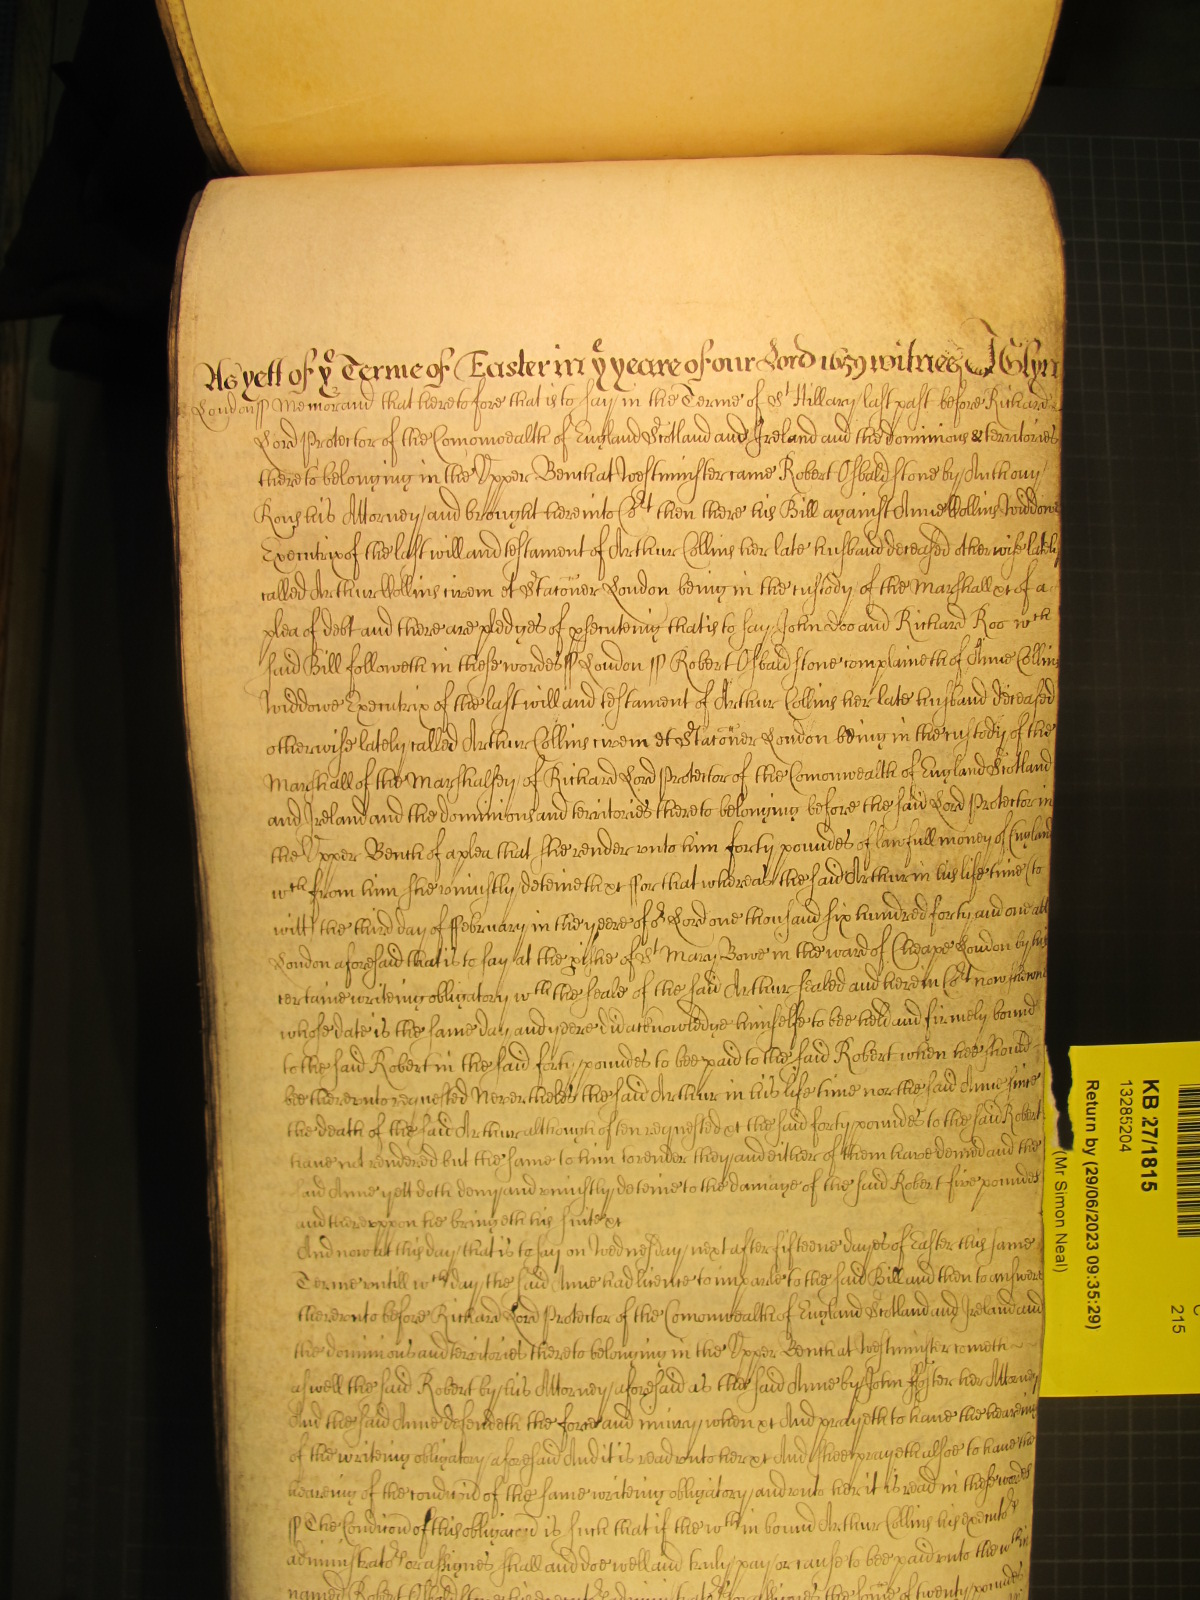 As yett of ye Terme of Easter in ye yeare of our Lord 1659 witnes J Glyn
London ss Memorand that heretofore that is to say in the Terme of St Hillary last past before Richard
Lord Protector of the Comonwealth of England Scotland and Ireland and the dominions & territories
thereto belonging in the Upper Bench at Westminster came Robert Osbaldstone by Anthony
Rous his Attorney and brought here into Cort then there his Bill against Anne Collins Widdowe
Executrix of the last will and testament of Arthur Collins her late husband deceased otherwise lately
called Arthur Collins civem et Staconer London being in the custody of the Marshall xt of a
plea of debt and there are pledges of psecuteing that is to say John Doo and Richard Roo wch
said Bill followeth in these wordes ss London ss Robert Osbaldstone complaineth of Anne Collins
Widdowe Executrix of the last will and testament of Arthur Collins her late husband deceased
otherwise lately called Arthur Collins civem et Staconer London being in the custody of the
Marshall of the Marshalsey of Richard Lord Protector of the Comonwealth of England Scotland
and Ireland and the dominions and territories thereto belonging before the said Lord Protector in
the Upper Bench of a plea that she render unto him forty poundes of lawfull money of England
wch from him she uniustly deteineth xt ffor that whereas the said Arthur in his life time (to
witt) the third day of ffebruary in the yeere of or Lord one thousand six hundred forty and one att
London aforesaid that is to say at the pishe of St Mary Bowe in the ward of Cheape London by his
certaine writeing obligatory wth the seale of the said Arthur sealed and here in Cort now shewne
whose date is the same day and yeere did acknowledge himselfe to bee held and firmely bound
to the said Robert in the said forty poundes to bee paid to the said Robert when hee should
bee thereunto requested Neverthelesse the said Arthur in his life time nor the said Anne since
the death of the said Arthur although often requested xt the said forty poundes to the said Robert
have not rendered but the same to him to render they and either of them have denied and the
said Anne yett doth deny and uniustly deteine to the damage of the said Robert five poundes
and thereuppon he bringeth his suite xt
And now at this day that is to say on Wednesday next after fifteene dayes of Easter this same
Terme untill wch day the said Anne had licence to imparle to the said Bill and then to answere
thereunto before Richard Lord Protector of the Comonwealth of England Scotland and Ireland and
the dominions and territories thereto belonging in the Upper Bench at Westminster cometh
aswell the said Robert by his Attorney aforesaid as the said Anne by John ffoster her Attorney
And the said Anne defendeth the force and iniury when xt And prayeth to have the heareing
of the writeing obligatory aforesaid And it is read unto her xt And shee prayeth alsoe to have the
heareing of the condicon of the same writeing obligatory and unto her it is read in these wordes
ss The Condicon of this obligacon is such that if the wthin bound Arthur Collins his executors
administrators or assignes shall and doe well and truly pay or cause to bee paid unto the wthin
named Robert Osbaldstone his executors administrators or assignes the some of twenty poundes
KB 27/1815
13285204
Return by (29/06/2023 09:35:29)
(Mr Simon Neal)
215